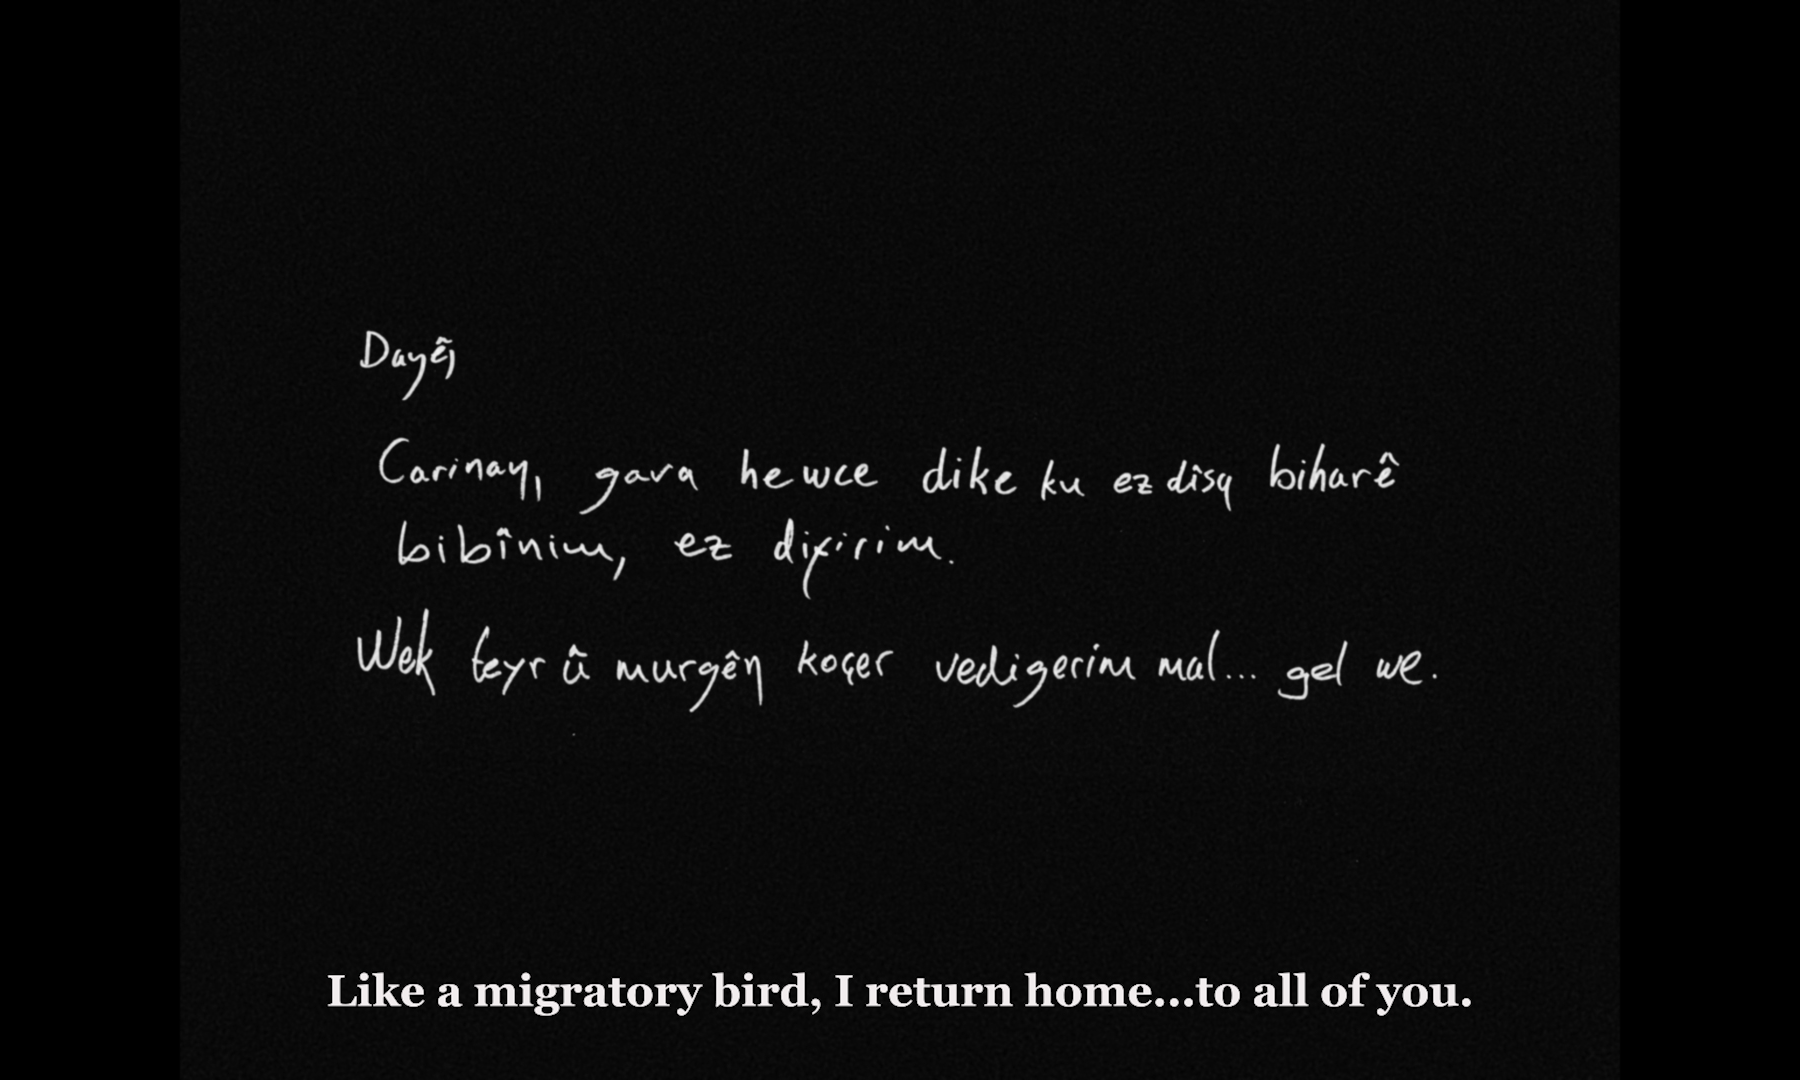 Dayê,
Carinan, gava hewce dike ku ez dîsa biharê
bibînim, ez difirim.
Wek teyr û murgên koçer vedigerim mal... gel we.
Like a migratory bird, I return home...to all of you.